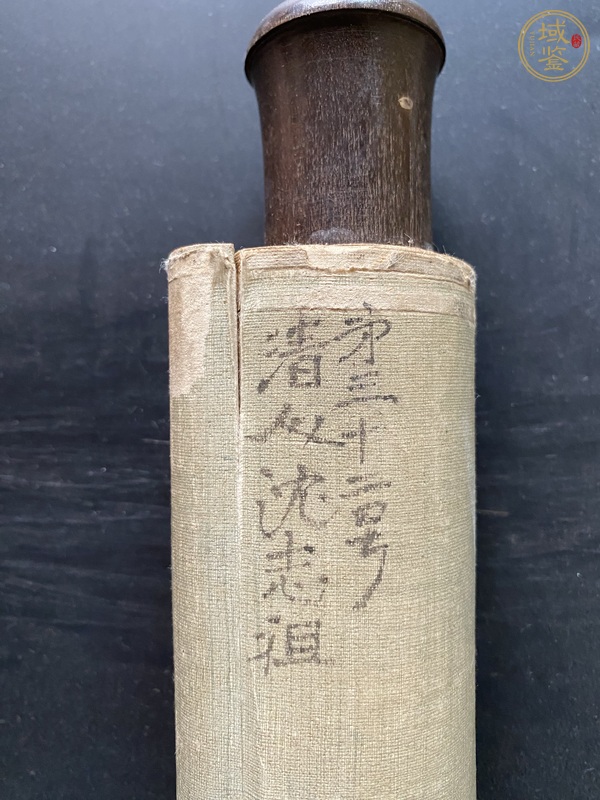 第三十二号
清人沈志祖
域鉴